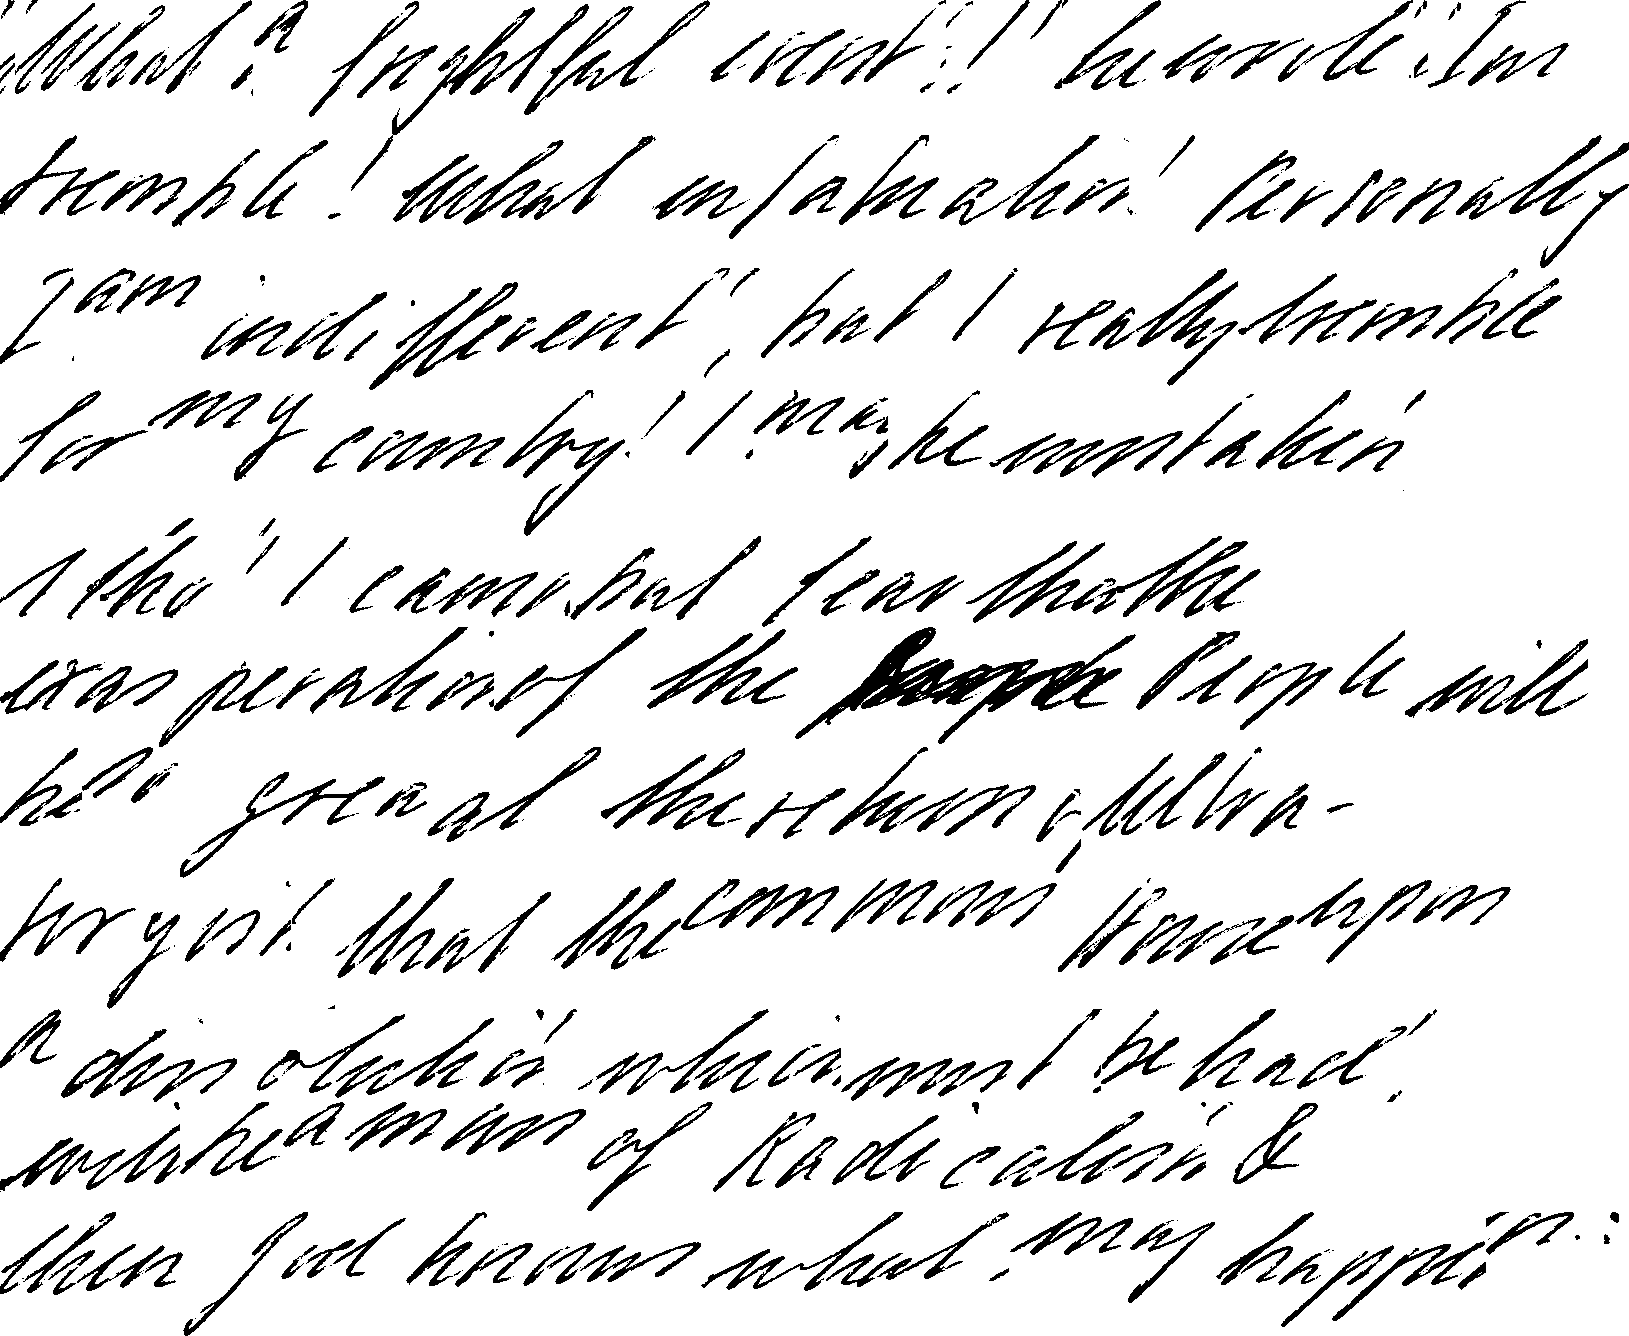 "What a frightful event"!! he wrote "I m
tremble! What infatuation! Personally
I am indifferent, but I really tremble
for my country! I may be mistaken
& tho' I cannot but fear that the
exasperation of the People will
be so great at the return of Ultra-
toryist that the common House upon
a dissolution which must be had,
will be a mass of Radicalism &
then God knows what may happen: